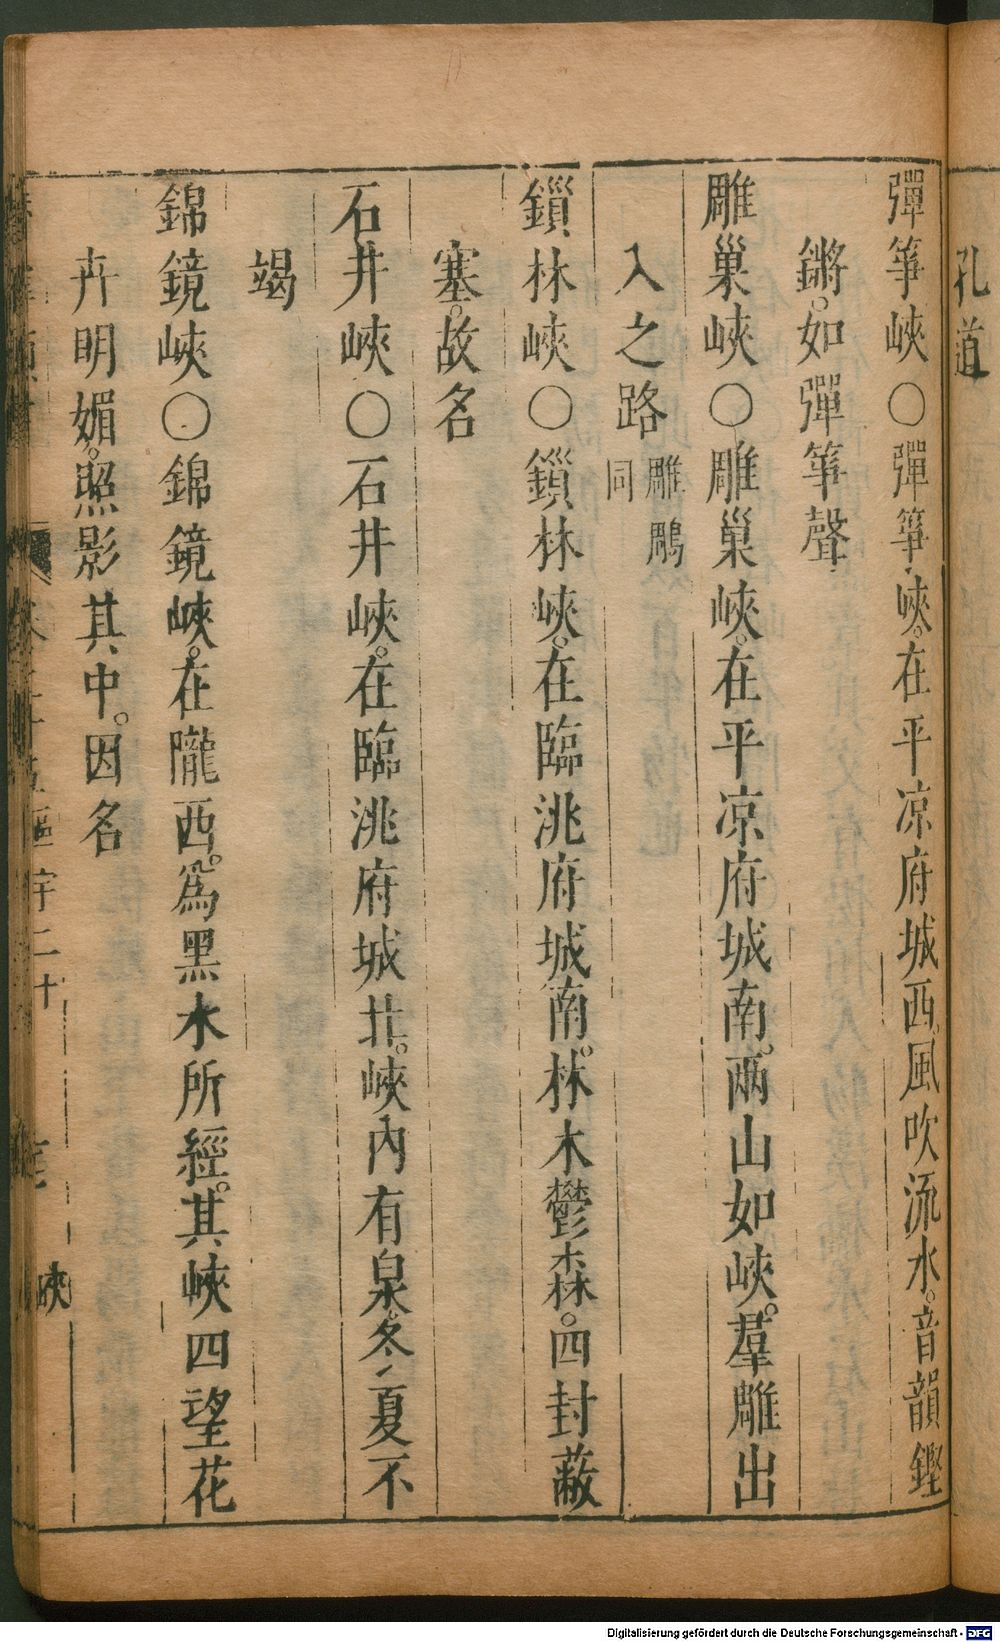 孔道
彈箏峽○彈箏峽。在平凉府城西。風吹流水。音韻鏗
鏘。如彈箏聲
雕巢峽○雕巢峽。在平凉府城南。兩山如峽。羣雕出
入之路 雕鵰
同
鎻林峽○鎻林峽。在臨洮府城南。林木鬱森。四封蔽
塞。故名
石井峽○石井峽。在臨洮府城北。峽內有泉。冬夏不
竭
錦鏡峽○錦鏡峽。在隴西。爲黑水所經。其峽四望花
卉明媚。照影其中。因名
區宇二十
峽
Digitalisierung gefördert durch die Deutsche Forschungsgemeinschaft - DFG